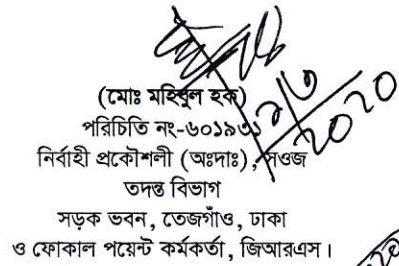 (মোঃ মহিবুল হক)
পরিচিতি নং-৬০১৯৩১
নির্বাহী প্রকৌশলী (অঃদাঃ), সওজ
তদন্ত বিভাগ
সড়ক ভবন, তেজগাঁও, ঢাকা
ও ফোকাল পয়েন্ট কর্মকর্তা, জিআরএস।
2020